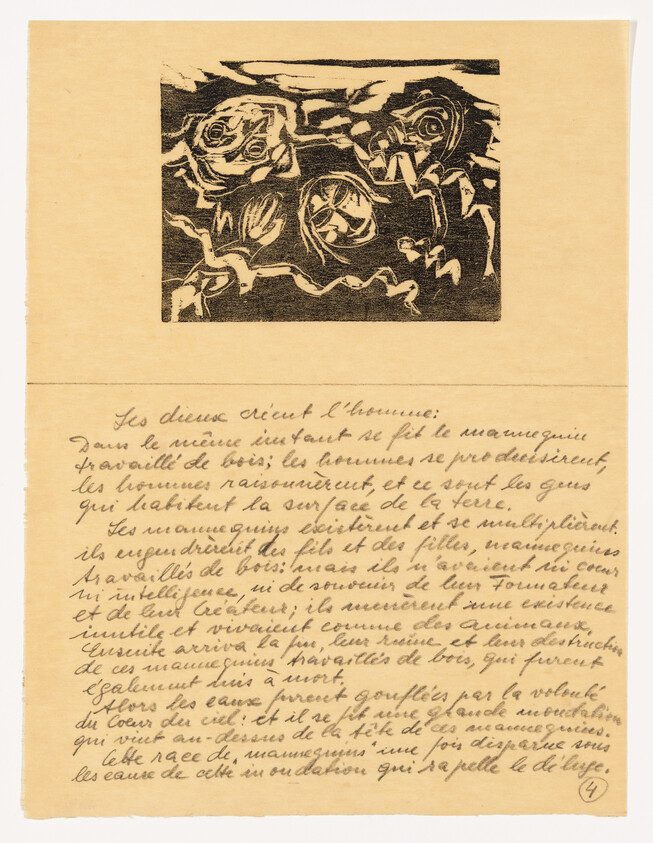 Les dieux créent l'homme:
Dans le même instant se fit le mannequin
travaillé de bois; les hommes se produisirent,
les hommes raisonnèrent, et ce sont les gens
qui habitent la surface de la terre.
Les mannequins existèrent et se multiplièrent.
ils engendrèrent des fils et des filles, mannequins
travaillés de bois: mais ils n'avaient ni coeur
ni intelligence, ni de souvenir de leur Formateur
et de leur Créateur; ils menèrent une existence
inutile et vivaient comme des animaux.
Ensuite arriva la fin, leur ruine et leur destruction
de ces mannequins travaillés de bois, qui furent
également mis à mort.
Alors les eaux furent gouflées par la volonté
du Coeur du ciel: et il se fit une grande inondation
qui vint au-dessus de la tête de ces mannequins.
Cette race de "mannequins" une fois disparue sous
les eaux de cette inondation qui rapelle le déluge.
4